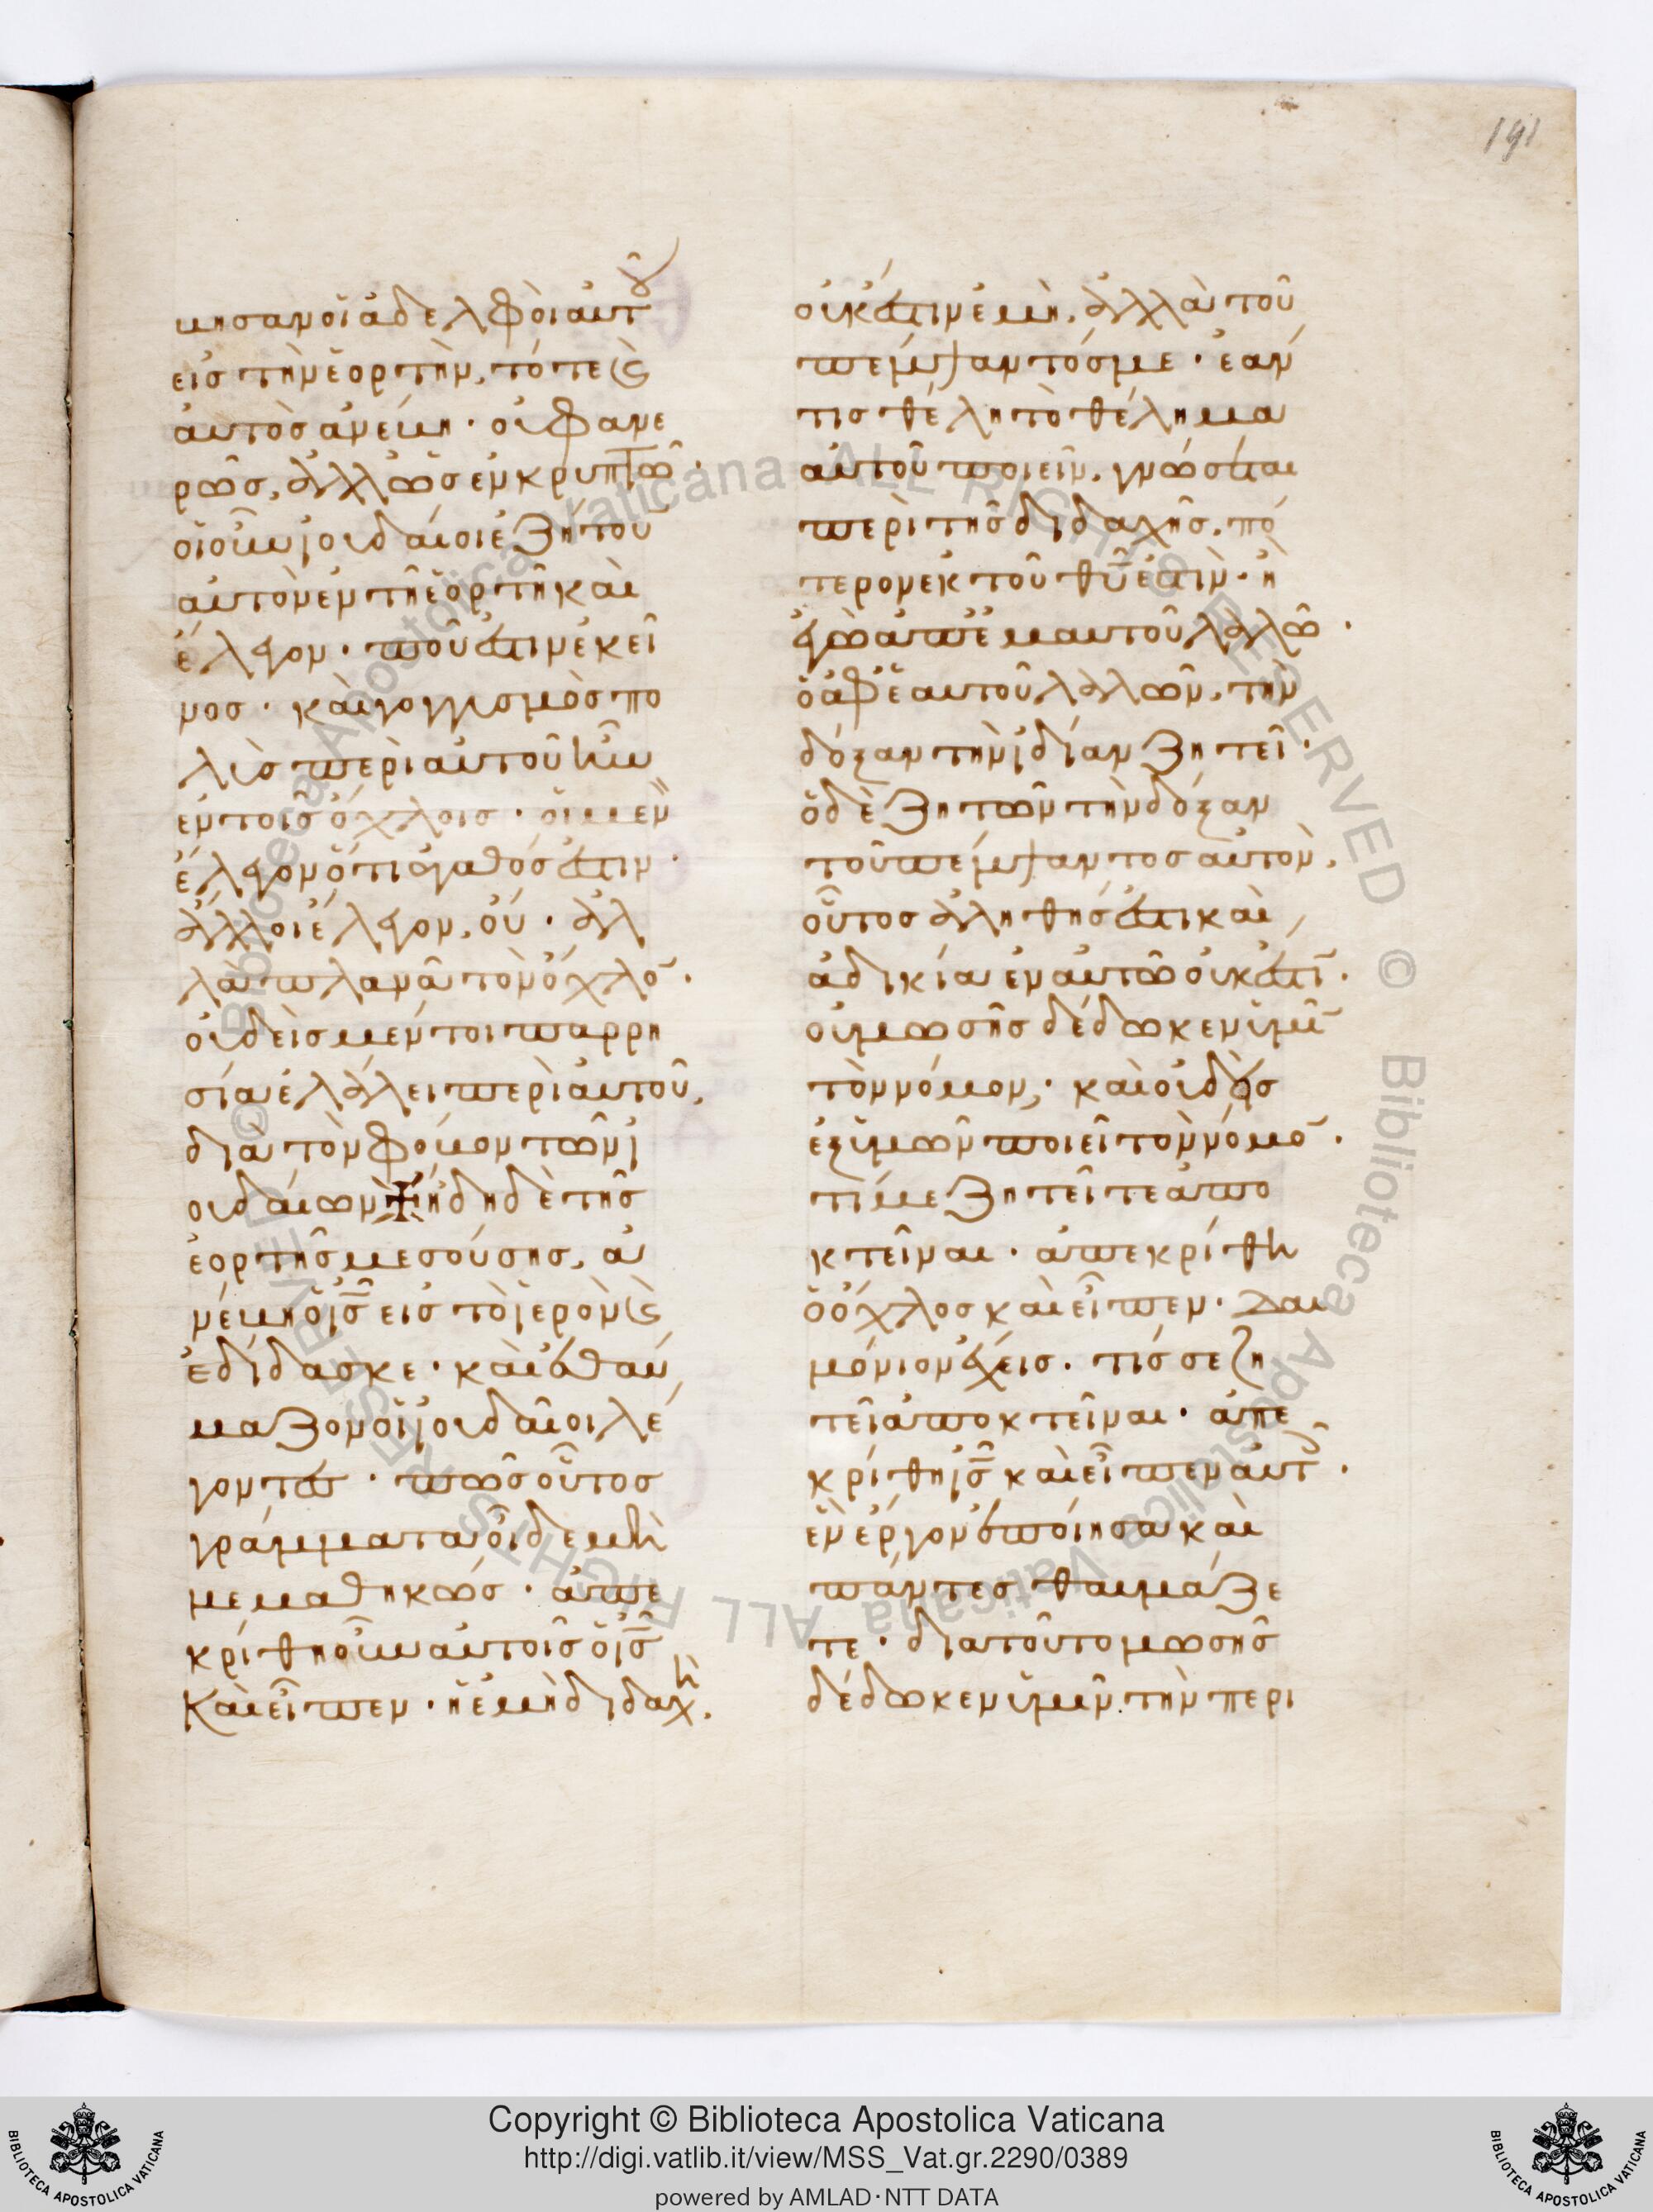 191
βησαν οἱ ἀδελφοὶ αὐτοῦ
εἰς τὴν ἑορτήν, τότε καὶ
αὐτὸς ἀνέβη· οὐ φανε
ρῶς, ἀλλ' ὡς ἐν κρυπτῶ·
οἱ οὖν ἰουδαῖοι ἐζήτουν
αὐτὸν ἐν τῆ ἑορτῆ καὶ
ἔλεγον· ποῦ ἐστιν ἐκεῖ
νος· καὶ γογγυσμὸς πο
λὺς περὶ αὐτοῦ ἦν
ἐν τοῖς ὄχλοις· οἱ μὲν
ἔλεγον ὅτι ἀγαθός ἐστιν·
ἄλλοι ἔλεγον, οὔ· ἀλ
λὰ πλανᾶ τὸν ὄχλον·
οὐδεὶς μέντοι παρρη
σία ἐλάλει περὶ αὐτοῦ,
διὰ τὸν φόβον τῶν ἰ
ουδαίων ✢ ἤδη δὲ τῆς
ἑορτῆς μεσούσης, ἀ
νέβη ὁ ἰς̅ εἰς τὸ ἱερὸν καὶ
ἐδίδασκε· καὶ ἐθαύ
μαζον οἱ ἰουδαῖοι λέ
γοντες· πῶς οὗτος
γράμματα οἶδε μὴ
μεμαθηκώς· ἀπε
κρίθη οὖν αὐτοῖς ὁ ἰς̅
καὶ εἶπεν· ἡ ἐμὴ διδαχὴ,
οὐκ ἔστιν ἐμή, ἀλλὰ τοῦ
πέμψαντός με· ἐάν
τις θέλη τὸ θέλημα
αὐτοῦ ποιεῖν, γνώσεται
περὶ τῆς διδαχῆς, πό
τερον ἐκ τοῦ θυ̅ ἐστιν· ἢ
ἐγὼ ἀπ' ἐμαυτοῦ λαλῶ·
ὁ ἀφ' ἑαυτοῦ λαλῶν, τὴν
δόξαν τὴν ἰδίαν ζητεῖ·
ὁ δὲ ζητῶν τὴν δόξαν
τοῦ πέμψαντος αὐτόν,
οὗτος ἀληθής ἐστι καὶ
ἀδικία ἐν αὐτῶ οὐκ ἔστιν·
οὐ μωσῆς δέδωκεν ὑμῖν
τὸν νόμον, καὶ οὐδεὶς
ἐξ ὑμῶν ποιεῖ τὸν νόμον·
τί με ζητεῖτε ἀπο
κτεῖναι· ἀπεκρίθη
ὁ ὄχλος καὶ εἶπεν· δαι
μόνιον ἔχεις· τίς σε ζη
τεῖ ἀποκτεῖναι· ἀπε
κρίθη ἰς̅ καὶ εἶπεν αὐτοῖς·
ἓν ἔργον ἐποίησα καὶ
πάντες θαυμάζε
τε· διατοῦτο μωσῆς
δέδωκεν ὑμῖν τὴν περι
Copyright © Biblioteca Apostolica Vaticana
http://digi.vatlib.it/view/MSS_Vat.gr.2290/0389
powered by AMLAD·NTT DATA